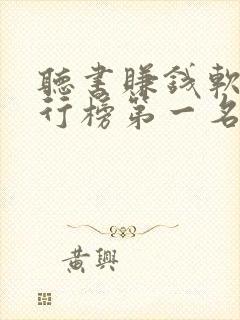 聽書賺錢軟
行榜第一名
黃興